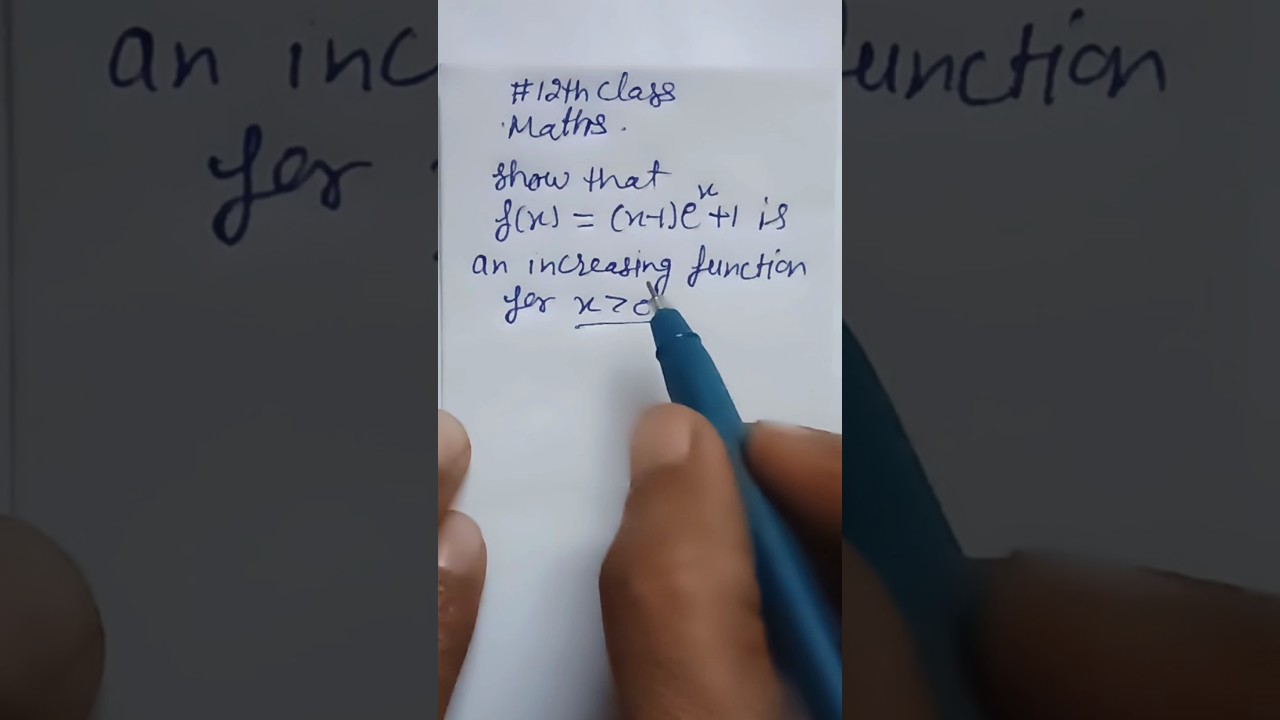 #12th Class
Maths.
show that
f(x) = (x-1)e^x+1 is
an increasing function
for x>0